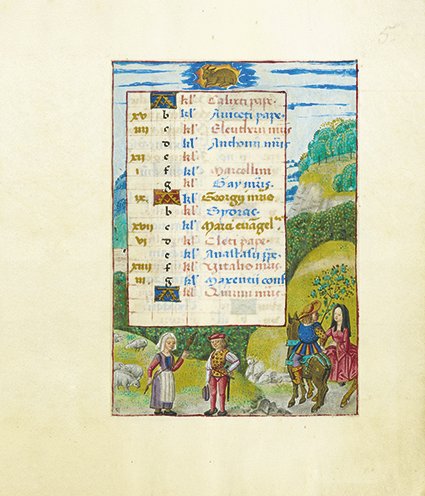 5
A kl' Calixti pape.
xv b kl' Aniceti pape.
iiii c kl' Eleutherii mris
d kl' Anthonii mris
xii e kl'
i f kl' Marcellini
g kl' Gay mris.
ix. A kl' Georgii mris
b kl'
xvii c kl' Marci evangel'
vi d kl' Cleti pape.
e kl' Anastasii ppe.
xiiii f kl' Vitalis mris
iii g kl' Maxentii conf
A kl' Quirini mris